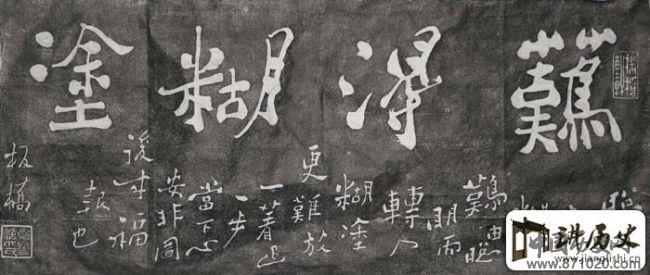 難得糊塗
聰
糊
難由聰
明而
轉入
糊塗
更難放
一著退
一步
當下心
安非圖
後來福
報也
板橋
讲历史
www.jianglishi.cn
www.871020.com